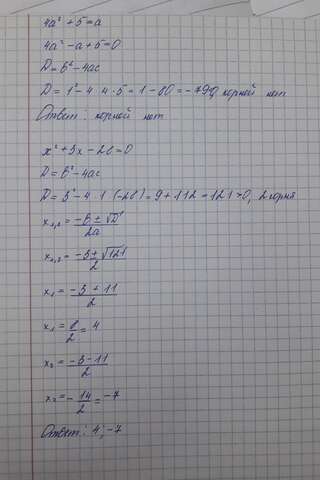 4a² + 5 = a
4a² - a + 5 = 0
D = b² - 4ac
D = 1² - 4 · 4 · 5 = 1 - 80 = -79 < 0, корней нет
Ответ: корней нет
x² + 3x - 28 = 0
D = b² - 4ac
D = 3² - 4 · 1 · (-28) = 9 + 112 = 121 > 0, 2 корня
x₁,₂ = (-b ± √D) / 2a
x₁,₂ = (-3 ± √121) / 2
x₁ = (-3 + 11) / 2
x₁ = 8/2 = 4
x₂ = (-3 - 11) / 2
x₂ = -14/2 = -7
Ответ: 4; -7